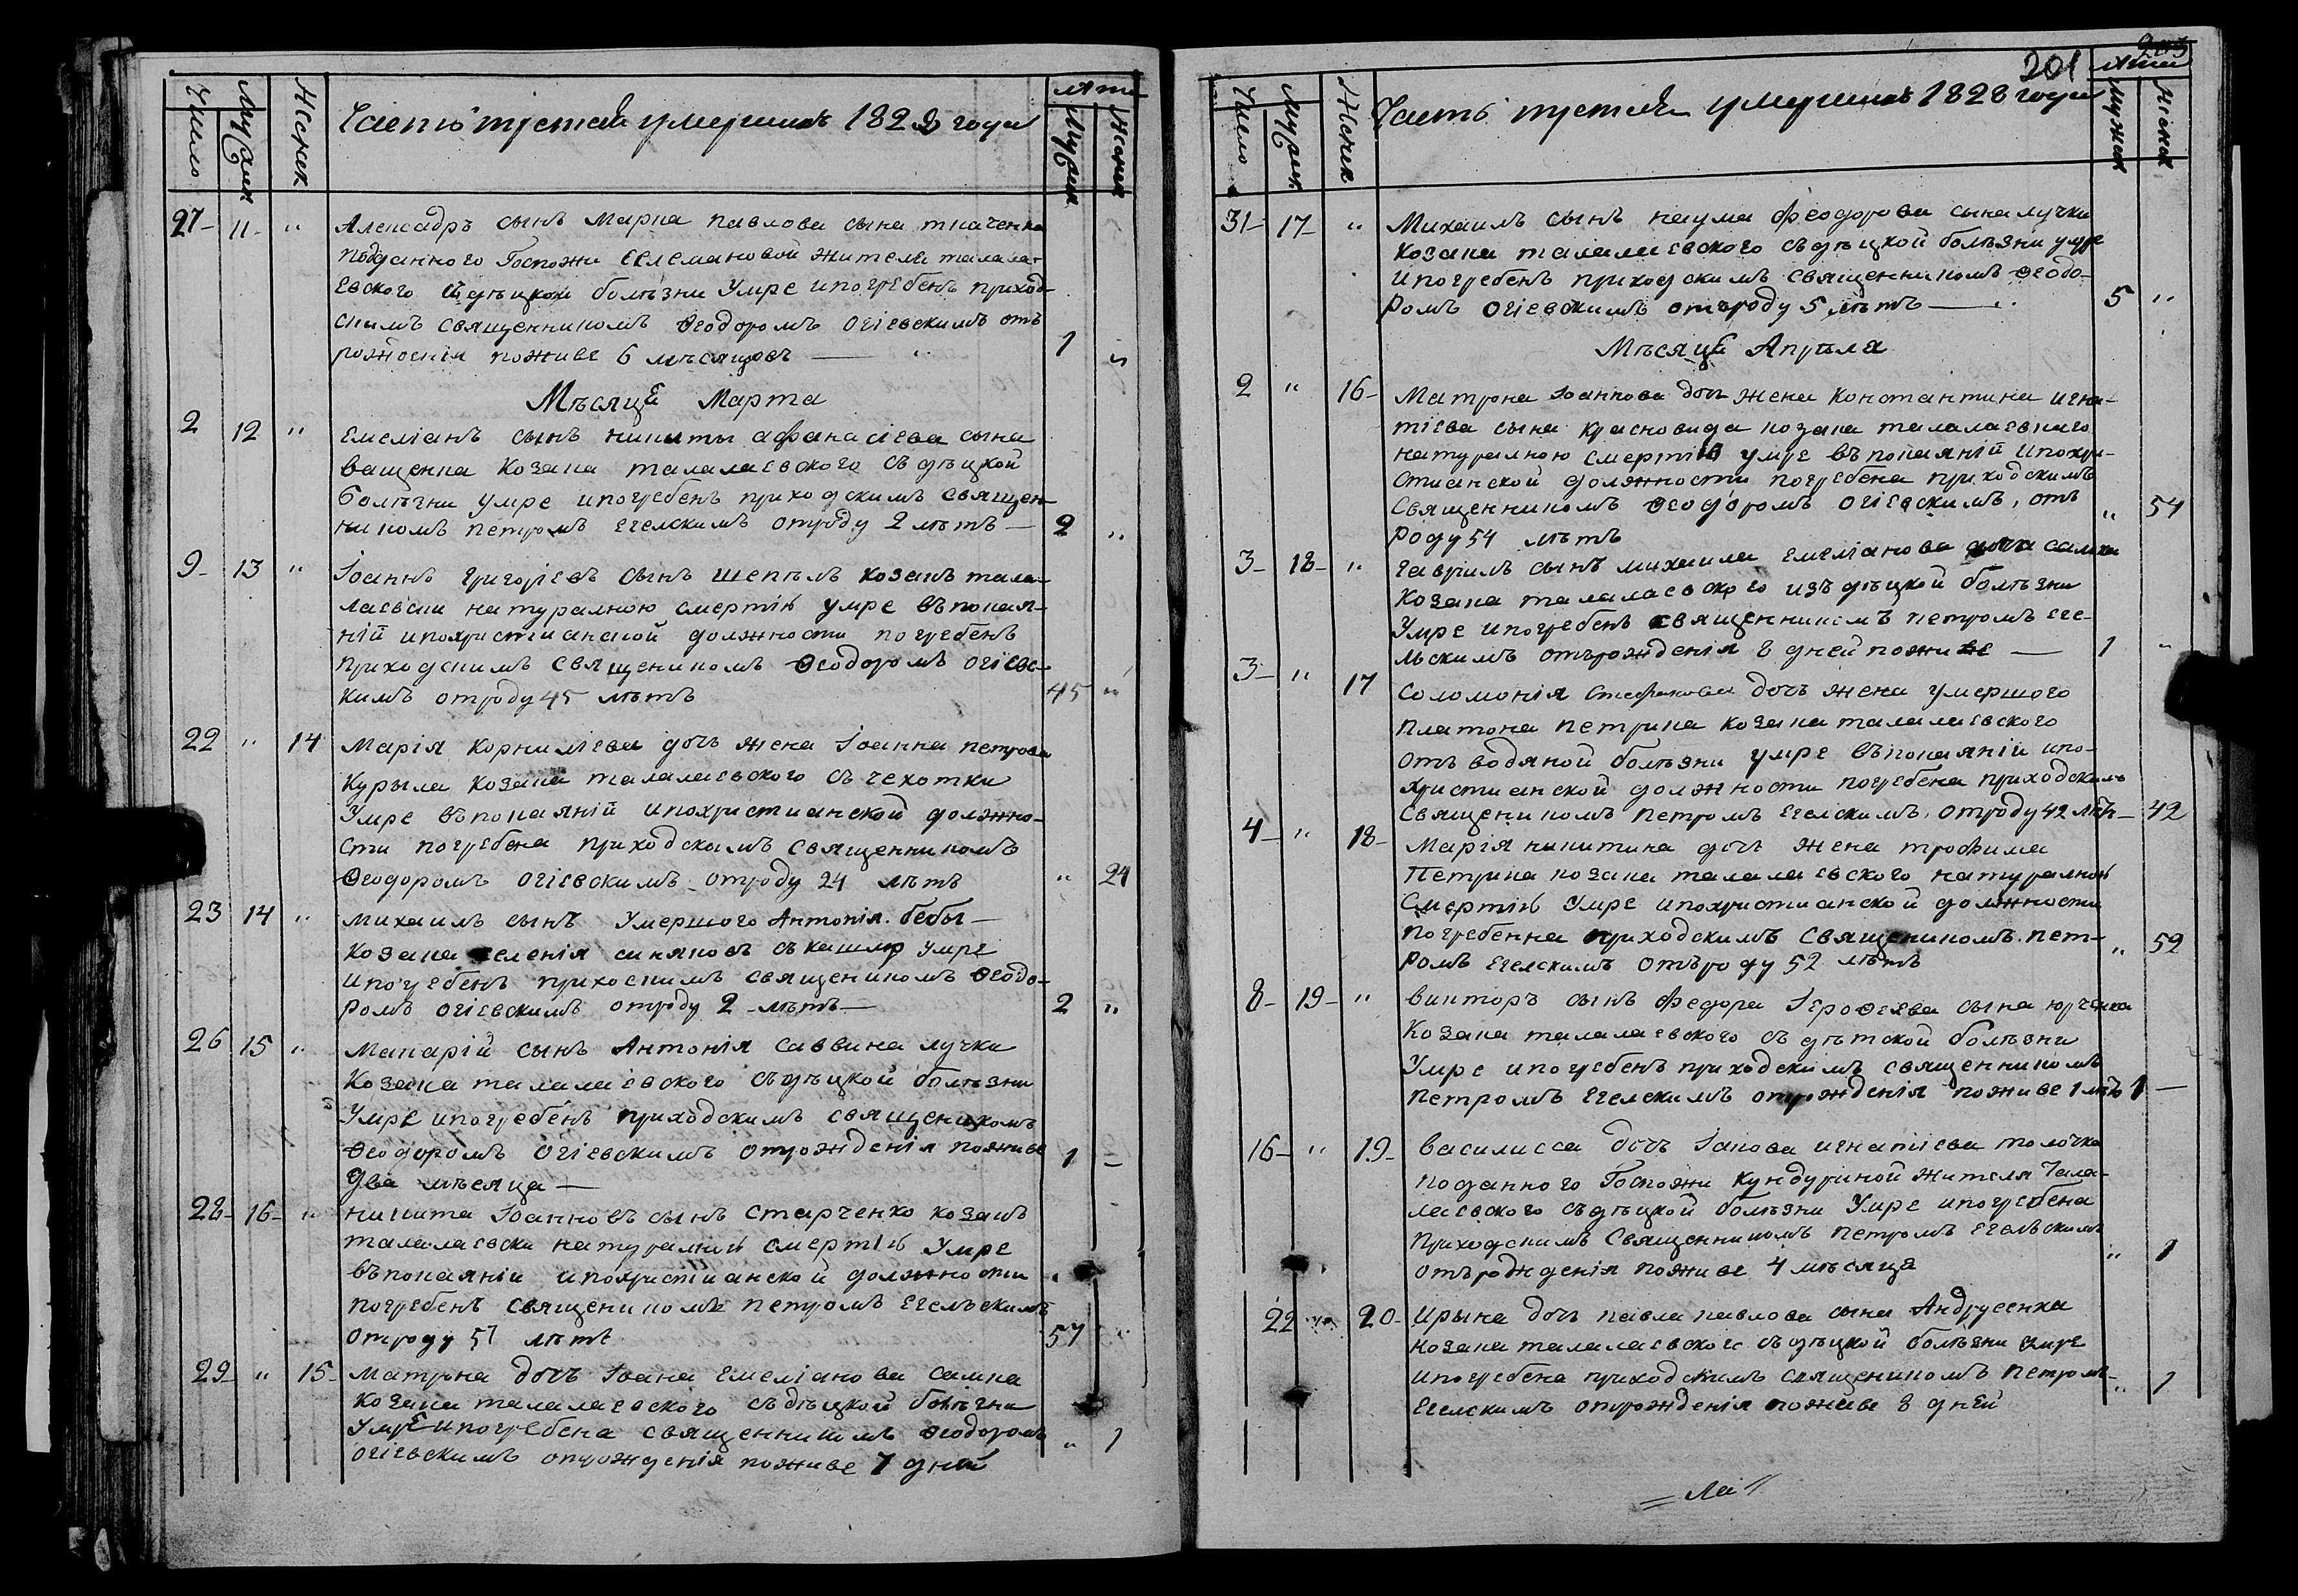 Число
Мужск
Женск
Часть третая умершихъ 1828 года
Лѣта
Мужск
Женск
27 11 " Алексадръ сынъ Марка Павлова сына Ткаченка
подданного Госпожи Селемановой жителя талала-
евского съдѣцкой болѣзни Умре ипогребенъ приход-
скимъ священникомъ Ѳеодоромъ Огіевскимъ отъ
рожденія поживе 6 мѣсяцовъ — 1 "
Мѣсяца Марта
2 12 " Емеліанъ сынъ никиты афанасіева сына
ващенка Козака талалаевского съ дѣцкой
болѣзни умре ипогребенъ приходскимъ священ-
никомъ петромъ Егелскимъ отроду 2 лѣтъ — 2 "
9 13 " Іоаннъ григоріевъ сынъ шепѣль козакъ тала-
лаевски натуралною смертію умре въ покая-
ній ипохристианской должности погребенъ
приходскимъ священикомъ Ѳеодоромъ огіевс-
кимъ отроду 45 лѣтъ 45 "
22 " 14 Марія Корниліева дочъ жена Іоанна петрова
Курыла Козака талалаевского съ чехотки
Умре въпокаяній ипохристианской должно-
сти погребена приходскимъ священникомъ
Ѳеодоромъ огіевскимъ отроду 24 лѣтъ " 24
23 14 " михаилъ сынъ умершого Антонія бебы —
козака селенія синяковъ съ кашлю умре
ипогребенъ прихоскимъ священикомъ Ѳеодо-
ромъ огіевскимъ отроду 2 лѣтъ — 2 "
26 15 " Макарій сынъ Антонія саввина лучки
Козака талалаевского съдѣцкой болѣзни
Умре ипогребенъ приходскимъ священикомъ
Ѳеодоромъ огіевскимъ отрожденія поживе 1 —
два мѣсяца —
28 16 " никита Іоанновъ сынъ старченко козакъ
талалаевски натуралной смертію Умре
въпокаяніи ипохристианской должности
погребенъ священикомъ петромъ Егелъскимъ
отроду 57 лѣтъ 57 "
29 " 15 матрона дочъ Іоана Емеліанова самка
Козака талалаевского съдѣцкой болѣзни
Умре ипогребена священникомъ Ѳеодоромъ " 1
огіевскимъ отрожденія поживе 7 дней
201
Число
Мужск
Женск
Часть третая умершихъ 1828 года
Лѣта
Мужск
Женск
31 17 " Михаилъ сынъ наума Феодорова сына лучки
козака талалаевского съдѣцкой болѣзни умре
ипогребенъ приходскимъ священникомъ Ѳеодо-
ромъ огіевскимъ отъроду 5 лѣтъ — 5 "
Мѣсяца Апрѣля
2 " 16 Матрона Іоаннова дочъ жена Константина игна-
тіева сына красновида козака талалаевкаго
натуралною смертію умре въпокаяній ипохри-
стианской должности погребена приходскимъ
священникомъ Ѳеодоромъ огіевскимъ, отъ " 54
роду 54 лѣтъ
3 18 " гаврилъ сынъ михаила емеліанова самка
козака талалаевского изъ дѣцкой болѣзни
Умре ипогребенъ священникомъ петромъ Еге-
льскимъ отърожденія 8 дней поживе — 1 "
3 " 17 соломонія Стефанова дочъ жена умершого
платона петрика козака талалаевского
отъ водяной болѣзни умре въпокаяніи ипо-
христианской должности погребена приходскимъ
священикомъ петромъ Егелскимъ отроду 42 лѣтъ — 42
4 " 18 Марія никитина дочъ жена трофима
Петрика козака талалаевского натуралной
Смертію умре ипохристианской должности
погребенна приходскимъ священикомъ пет-
ромъ Егелскимъ отъроду 52 лѣтъ " 52
8 19 " викторъ сынъ федора Іерофеява сына юрченка
Козака талалаевского съ дѣтской болѣзни
Умре ипогребенъ приходскимъ священникомъ
петромъ Егелскимъ отрожденія поживе 1 лѣтъ 1 —
16 " 19 василисса дочъ Іакова игнатіева толочка
поданного Госпожи Кундуриной жителя Тала-
лаевского съдѣцкой болѣзни Умре ипогребена
приходскимъ Священникомъ петромъ Егелъскимъ
отъродженія поживе 4 мѣсяца " 1
22 " 20 Ирына дочъ павла павлова сына Андрусенка
козака талалаевского съдѣцкой болѣзни умре
ипогребена приходскимъ священикомъ петромъ
Егелскимъ отрожденія поживе 8 дней " 1